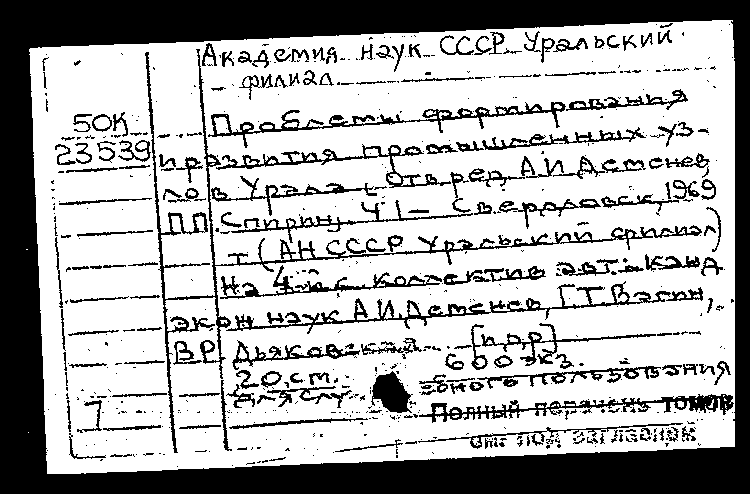 Академия наук СССР. Уральский
филиал
50К
23539
Проблемы формирования
и развития промышленных уз-
лов Урала. Отв. ред. А.И. Деменев,
П.П. Спирин. Ч 1 – Свердловск, 1969
т (АН СССР Уральский филиал)
На 4-й с. коллектив авт.: канд
экон наук А.И. Деменев, Г.Т. Вагин,
В.Р. Дьяковская [и др]
20 см. 600 экз.
Для слу ебного пользования
7
Полный перечень томов
см. под заглавием